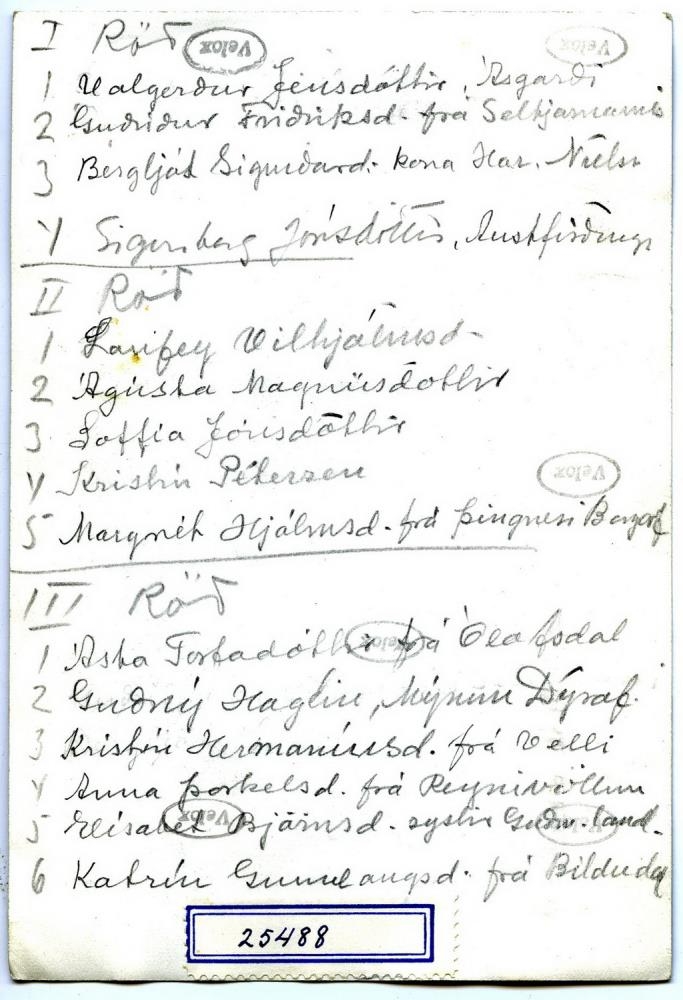 I Röð
Velox
Velox
1 Valgerður Jensdóttir, Ásgarði
2 Guðríður Friðriksd. frá
3 Bergljót Sigurðard. kona Har. Níelss
4 Jónsdóttir, Austfirðingur
II Röð
1 Vilhjálmsd.
2 Ágústa Magnúsdóttir
3 Soffía Jónsdóttir
4 Kristín Petersen
Velox
5 Margrét Hjálmsd. frá Þingnesi Borgarf
III Röð
1 Ásta Torfadóttir frá Ólafsdal
Velox
2 Guðný Hagalín, Mýrum Dýraf.
3 Kristín Hermaníusd. frá Velli
4 Anna Þorkelsd. frá Reynivöllum
5 Elísabet Bjarnad. systir Guðm. land.
Velox
Velox
6 Katrín Gunnlaugsd. frá Bíldudal
25488